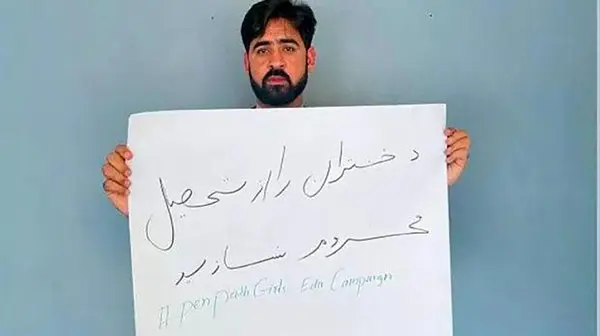 دختران را از تحصیل
محروم نسازید
# penpath Girls Edu Campaign